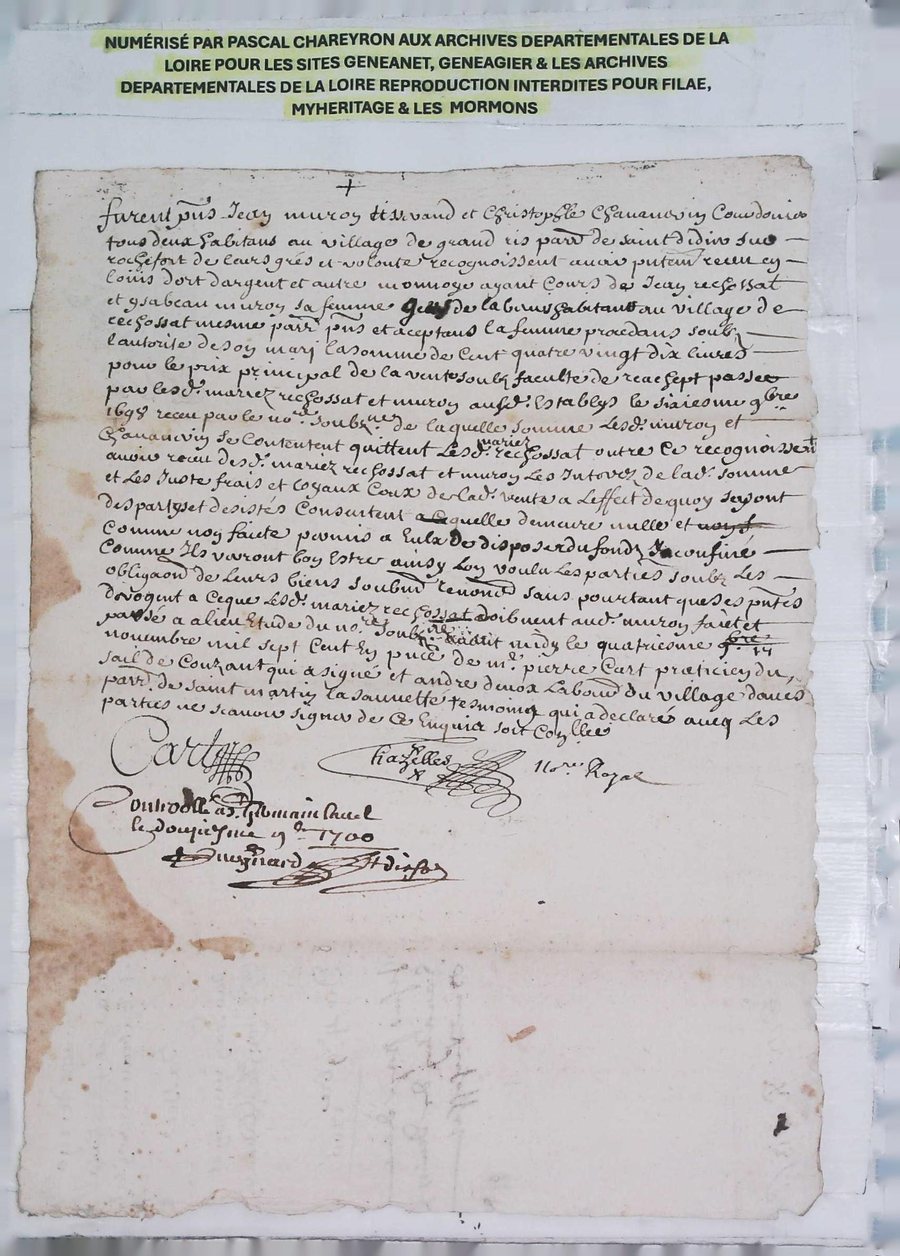 NUMÉRISÉ PAR PASCAL CHAREYRON AUX ARCHIVES DEPARTEMENTALES DE LA
LOIRE POUR LES SITES GENEANET, GENEAGIER & LES ARCHIVES
DEPARTEMENTALES DE LA LOIRE REPRODUCTION INTERDITES POUR FILAE,
MYHERITAGE & LES MORMONS
furent pnts Jean muron tisserand et Christophle Chavanerin
tous deux habitans au village de grand ris parr de saint didier sur
rochefort de leurs grés et volonté recognoissent avoir receu en
louis dort dargent et autre monnoye ayant Cours de Jean rechossat
et ysabeau muron sa femme habitant au village de
rechossat mesme parr pnts et aceptans la femme procedans soubz
lautorité de son marj la somme de Cent quatre vingt dix livres
pour le prix principal de la vente soubz faculté de reachept passee
par lesd. mariez rechossat et muron ausd. Establys le siziesme 9bre
1698 receu par le nore soubzne de laquelle somme lesd. muron et
Chavanerin se Contentent quittent lesd. mariez rechossat outre Ce recognoissent
avoir receu desd. mariez rechossat et muron les Interez de lad. somme
et les Juste frais et loyaux Coux de lad. vente a leffect de quoy se sont
despartys et desistés Consentent a Cequelle demeure nulle et
Comme non faicte permis a Eulx de disposer du fondz
Comme Ils verront bon Estre ainsy lon voulu les parties soubz les
obligaond de leurs biens soubmd renoncd sans pourtant que ses pntes
derogent a Ceque lesd. mariez rechossat doibvent aud. muron faict et
passé a Etude du nore midy le quatriesme
novembre mil sept Cent En pnce de mr pierre Cart praticien du
sail de Couzant qui a signé et andre labour du village
parr. de saint martin la sauvette tesmoing qui a declaré aveq les
parties ne scavoir signer de Ce Enquis
Cart
Chazelles nore Royal
Controollé a St Germain laval
le douziesme 9bre 1700